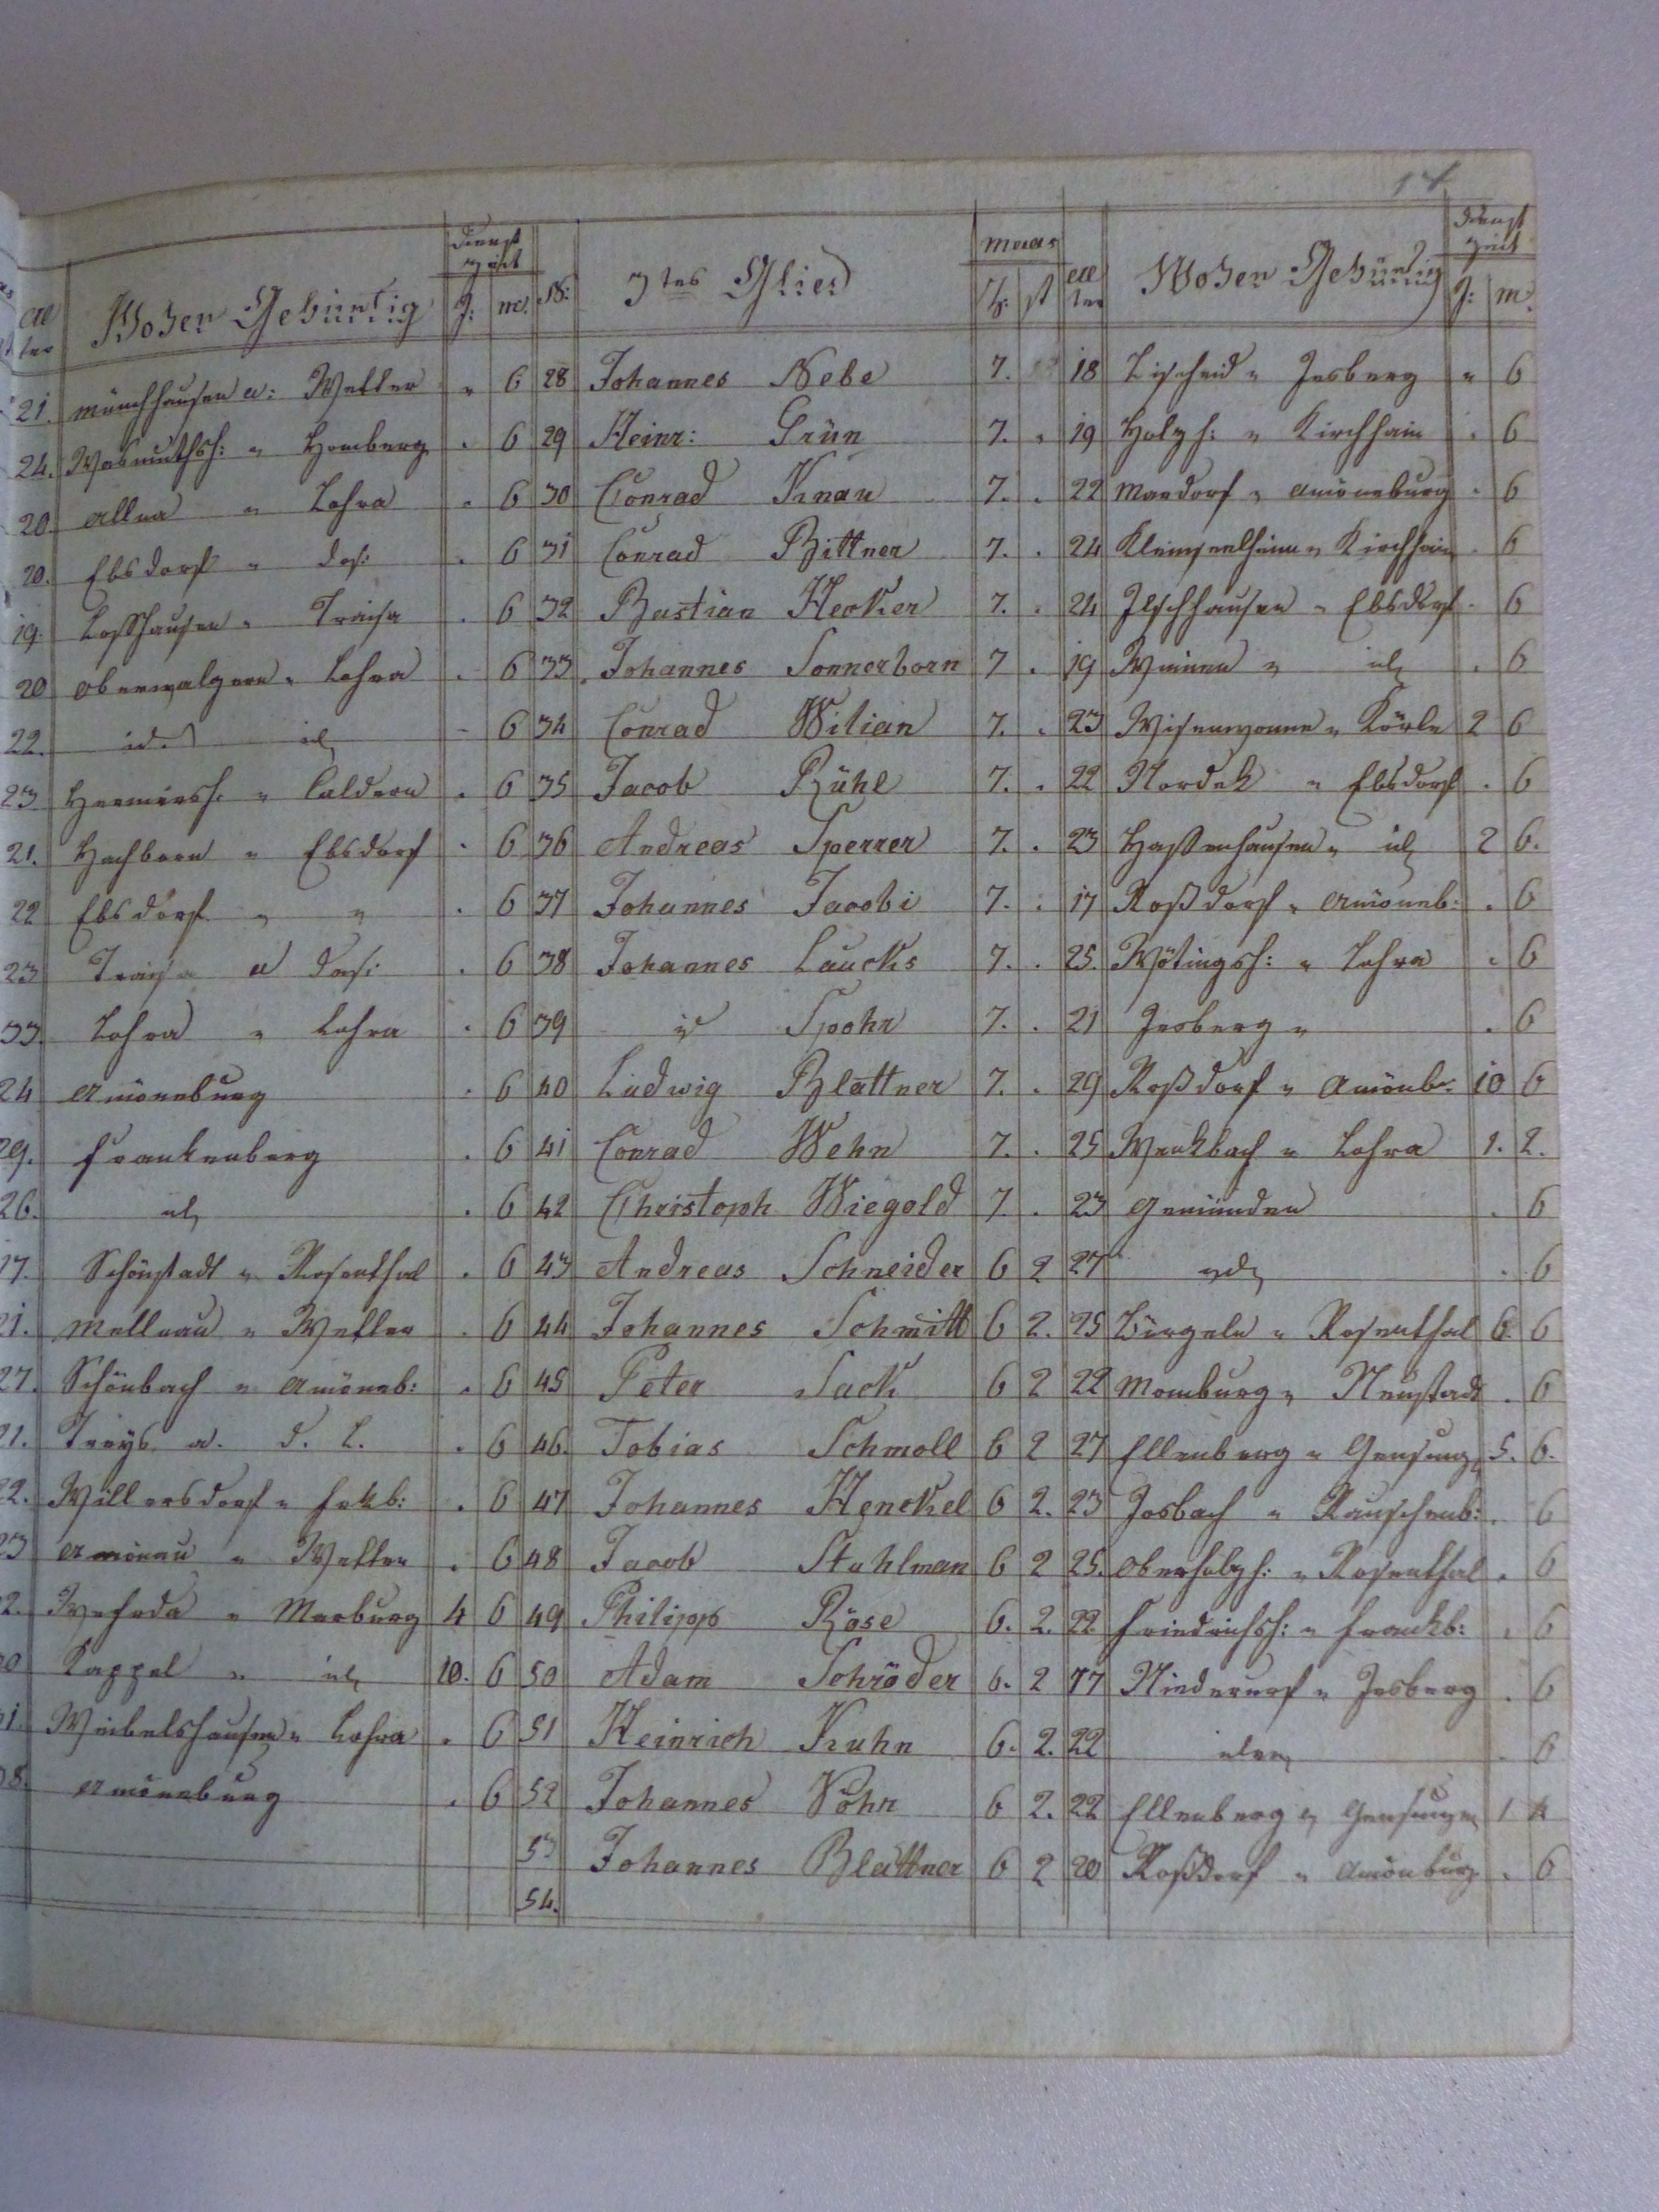 17
Dienst zeit maas Dienst zeit
al ter Woher Gebürtig J: M: N: 3tes Glied Z: st al ter Woher Gebürtig J: M:
21. Münchhausen a: Wetter " 6 28 Johannes Nebe 7. 18 Lischeid " Jesberg " 6
24. Wasmuthsh: " Homberg . 6 29 Heinr: Grün 7. . 19 Holzh: " Kirchhain . 6
20. Allna " Lohra . 6 30 Conrad Knau 7. . 22 Mardorf " Amöneburg . 6
20. Ebsdorf " das: . 6 31 Conrad Bittner 7. . 24 Kleinseelheim " Kirchhain . 6
19. Loshausen " Traisa . 6 32 Bastian Hecker 7. . 24 Ilschhausen " Ebsdorf . 6
20 Oberwalgern " Lohra . 6 33. Johannes Sonnerborn 7 . 19 Winnen " id . 6
22. id id - 6 34 Conrad Wilian 7. . 23 " Körle 2 6
23 Hermersh: " Caldern . 6 35 Jacob Rühl 7. . 22 Nordek " Ebsdorf . 6
21. Hachborn " Ebsdorf . 6 36 Andreas Sperrer 7. . 23 Hassenhausen " id 2 6.
22 Ebsdorf " " . 6 37 Johannes Jacobi 7. . 17 Roßdorf " Amöneb: . 6
23 Traisa a das: . 6 38 Johannes Laucks 7. . 25. " Lohra . 6
33. Lohra " Lohra . 6 39 id Spohr 7. . 21 Jesberg " . 6
24 Amöneburg . 6 40 Ludwig Blattner 7. . 29 Roßdorf " Amönb: 10 6
29. Frankenberg . 6 41 Conrad Wehn 7. . 25 Wenkbach " Lohra 1. 2.
26. id . 6 42 Christoph Wiegold 7 . 23 Gemünden . 6
17. Schönstadt " Rosenthal . 6 43 Andreas Schneider 6 2 27 id . 6
21. Mellnau " Wetter . 6 44 Johannes Schmitt 6 2. 25 " Rosenthal 6. 6
27. Schönbach " Amöneb: . 6 45 Peter Sack 6 2 22 Momburg " Neustadt . 6
21. Treys a. d. L. . 6 46. Tobias Schmoll 6 2 27 Ellenberg " Gensung 5. 6.
22. Willersdorf " Frkb: . 6 47 Johannes Henckel 6 2. 23 Josbach " Rauschenb: . 6
23 Amönau " Wetter . 6 48 Jacob Stuhlman 6 2 25. Oberholzh: " Rosenthal . 6
2. Wehrda " Marburg 4 6 49 Philipp Röse 6. 2. 22 Friedrichsh: " Frankb: . 6
0 Kappel " id 10. 6 50 Adam Schröder 6. 2 17 Niederurf " Jesberg . 6
1. " Lohra . 6 51 Heinrich Kuhn 6. 2. 22 idem . 6
8. Amöneburg . 6 52 Johannes Vöhn 6 2. 22 Ellenberg " Gensungen 1 4
53 Johannes Blattner 6 2 20 Roßdorf " Amönburg . 6
54.